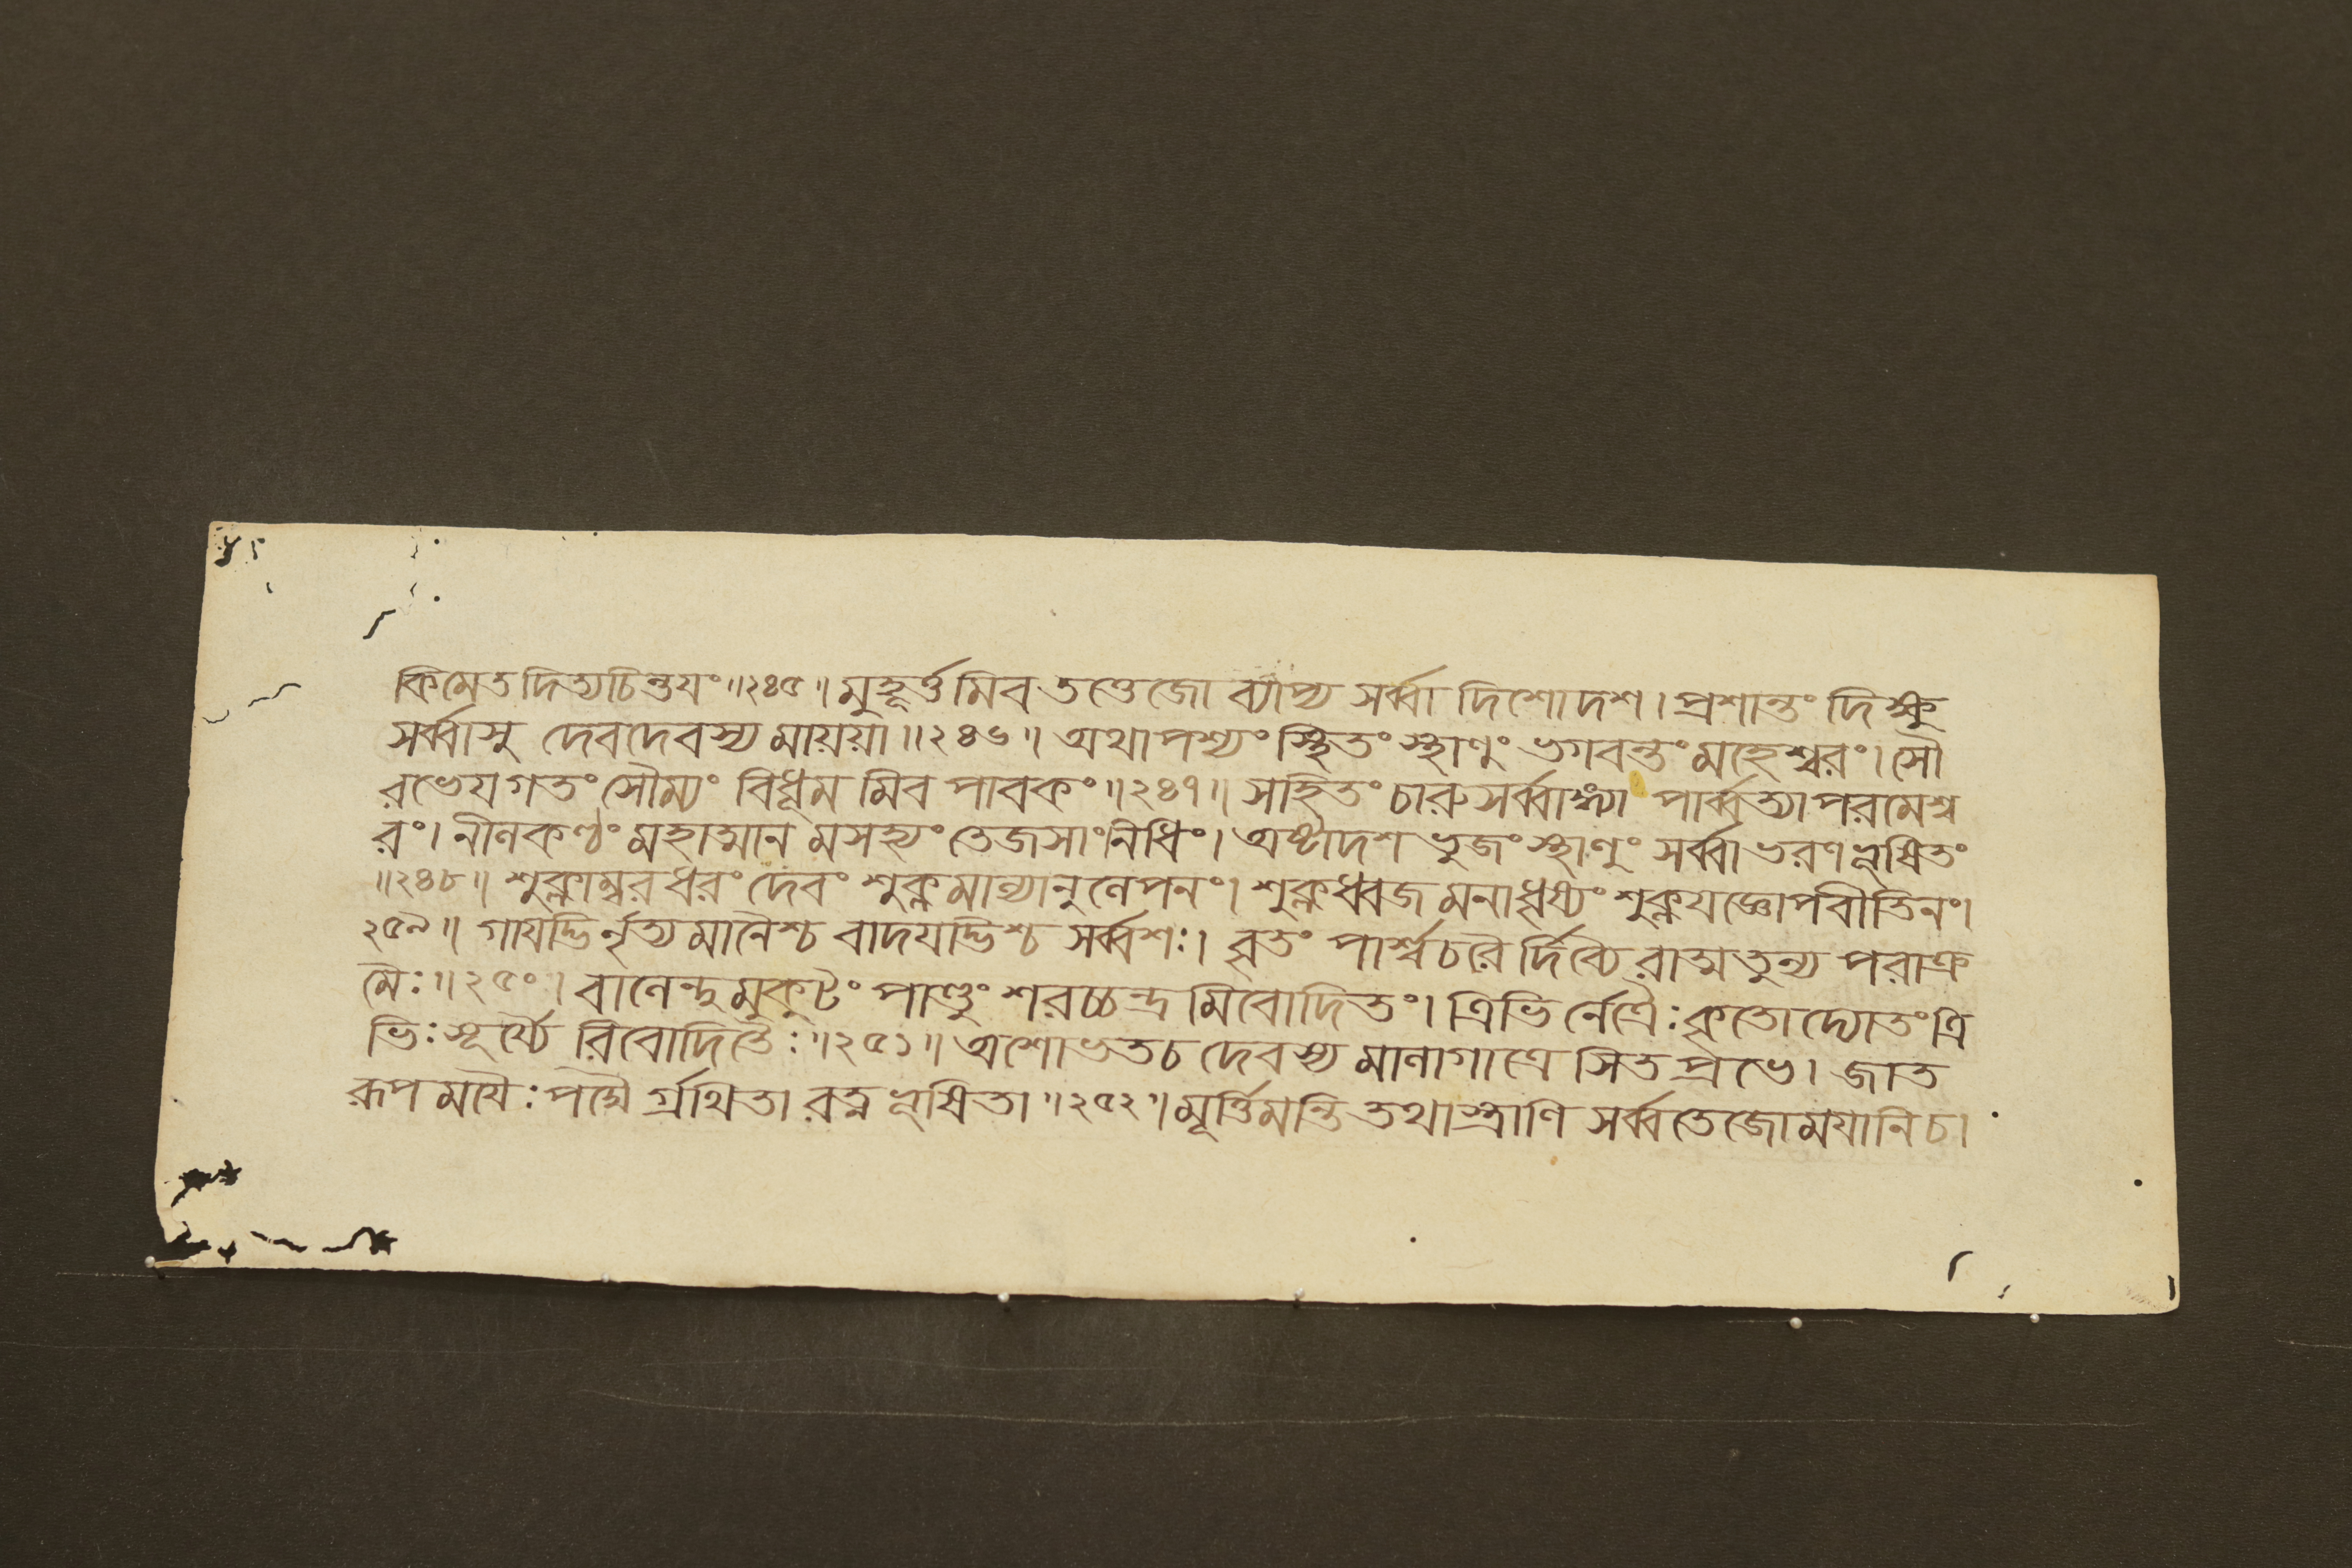 কিমেতদিত্যচিন্তযং॥২৪৫॥মুহূর্ত্তমিব তত্তেজো ব্যাপ্য সর্ব্বা দিশোদশ। প্রশান্তং দিক্ষু
সর্ব্বাসু দেবদেবস্য মায়য়া॥২৪৬॥ অথাপশ্যং স্থিতং স্থাণুং ভগবন্তং মহেশ্বরং। সৌ
রভেযগতং সৌম্যং বিধূমমিব পাবকং॥২৪৭॥ সহিতং চারুসর্ব্বাঙ্গ্যা পার্ব্বত্যা পরমেশ্ব
রং। নীলকণ্ঠং মহাত্মানমসহ্যং তেজসাংনিধিং। অষ্টাদশভুজংস্থাণুং সর্ব্বাভরণভূষিতং
॥২৪৮॥ শুক্লাম্বরধরং দেবং শুক্লমাল্যানুলেপনং। শুক্লধ্বজমনাধৃষ্যং শুক্লযজ্ঞোপবীতিনং।
২৫৯॥ গাযদ্ভির্নৃত্যমানৈশ্চ বাদযদ্ভিশ্চ সর্ব্বশঃ। বৃতং পার্শ্বচরৈর্দিব্যৈরাত্মতুল্যপরাক্র
মৈঃ॥২৫০। বালেন্দুমুকুটং পাণ্ডুং শরচ্চন্দ্রমিবোদিতং। ত্রিভির্নেত্রৈঃকৃতোদ্যোতং ত্রি
ভিঃসূর্য্যৈরিবোদিতৈঃ॥২৫১॥ অশোভতচ দেবস্য মালাগাত্রে সিতপ্রভে। জাত
রূপমযৈঃপদ্মৈর্গ্রথিতা রত্নভূষিতা॥২৫২॥মূর্ত্তিমন্তি তথাস্ত্রাণি সর্ব্বতেজোমযানি চ।